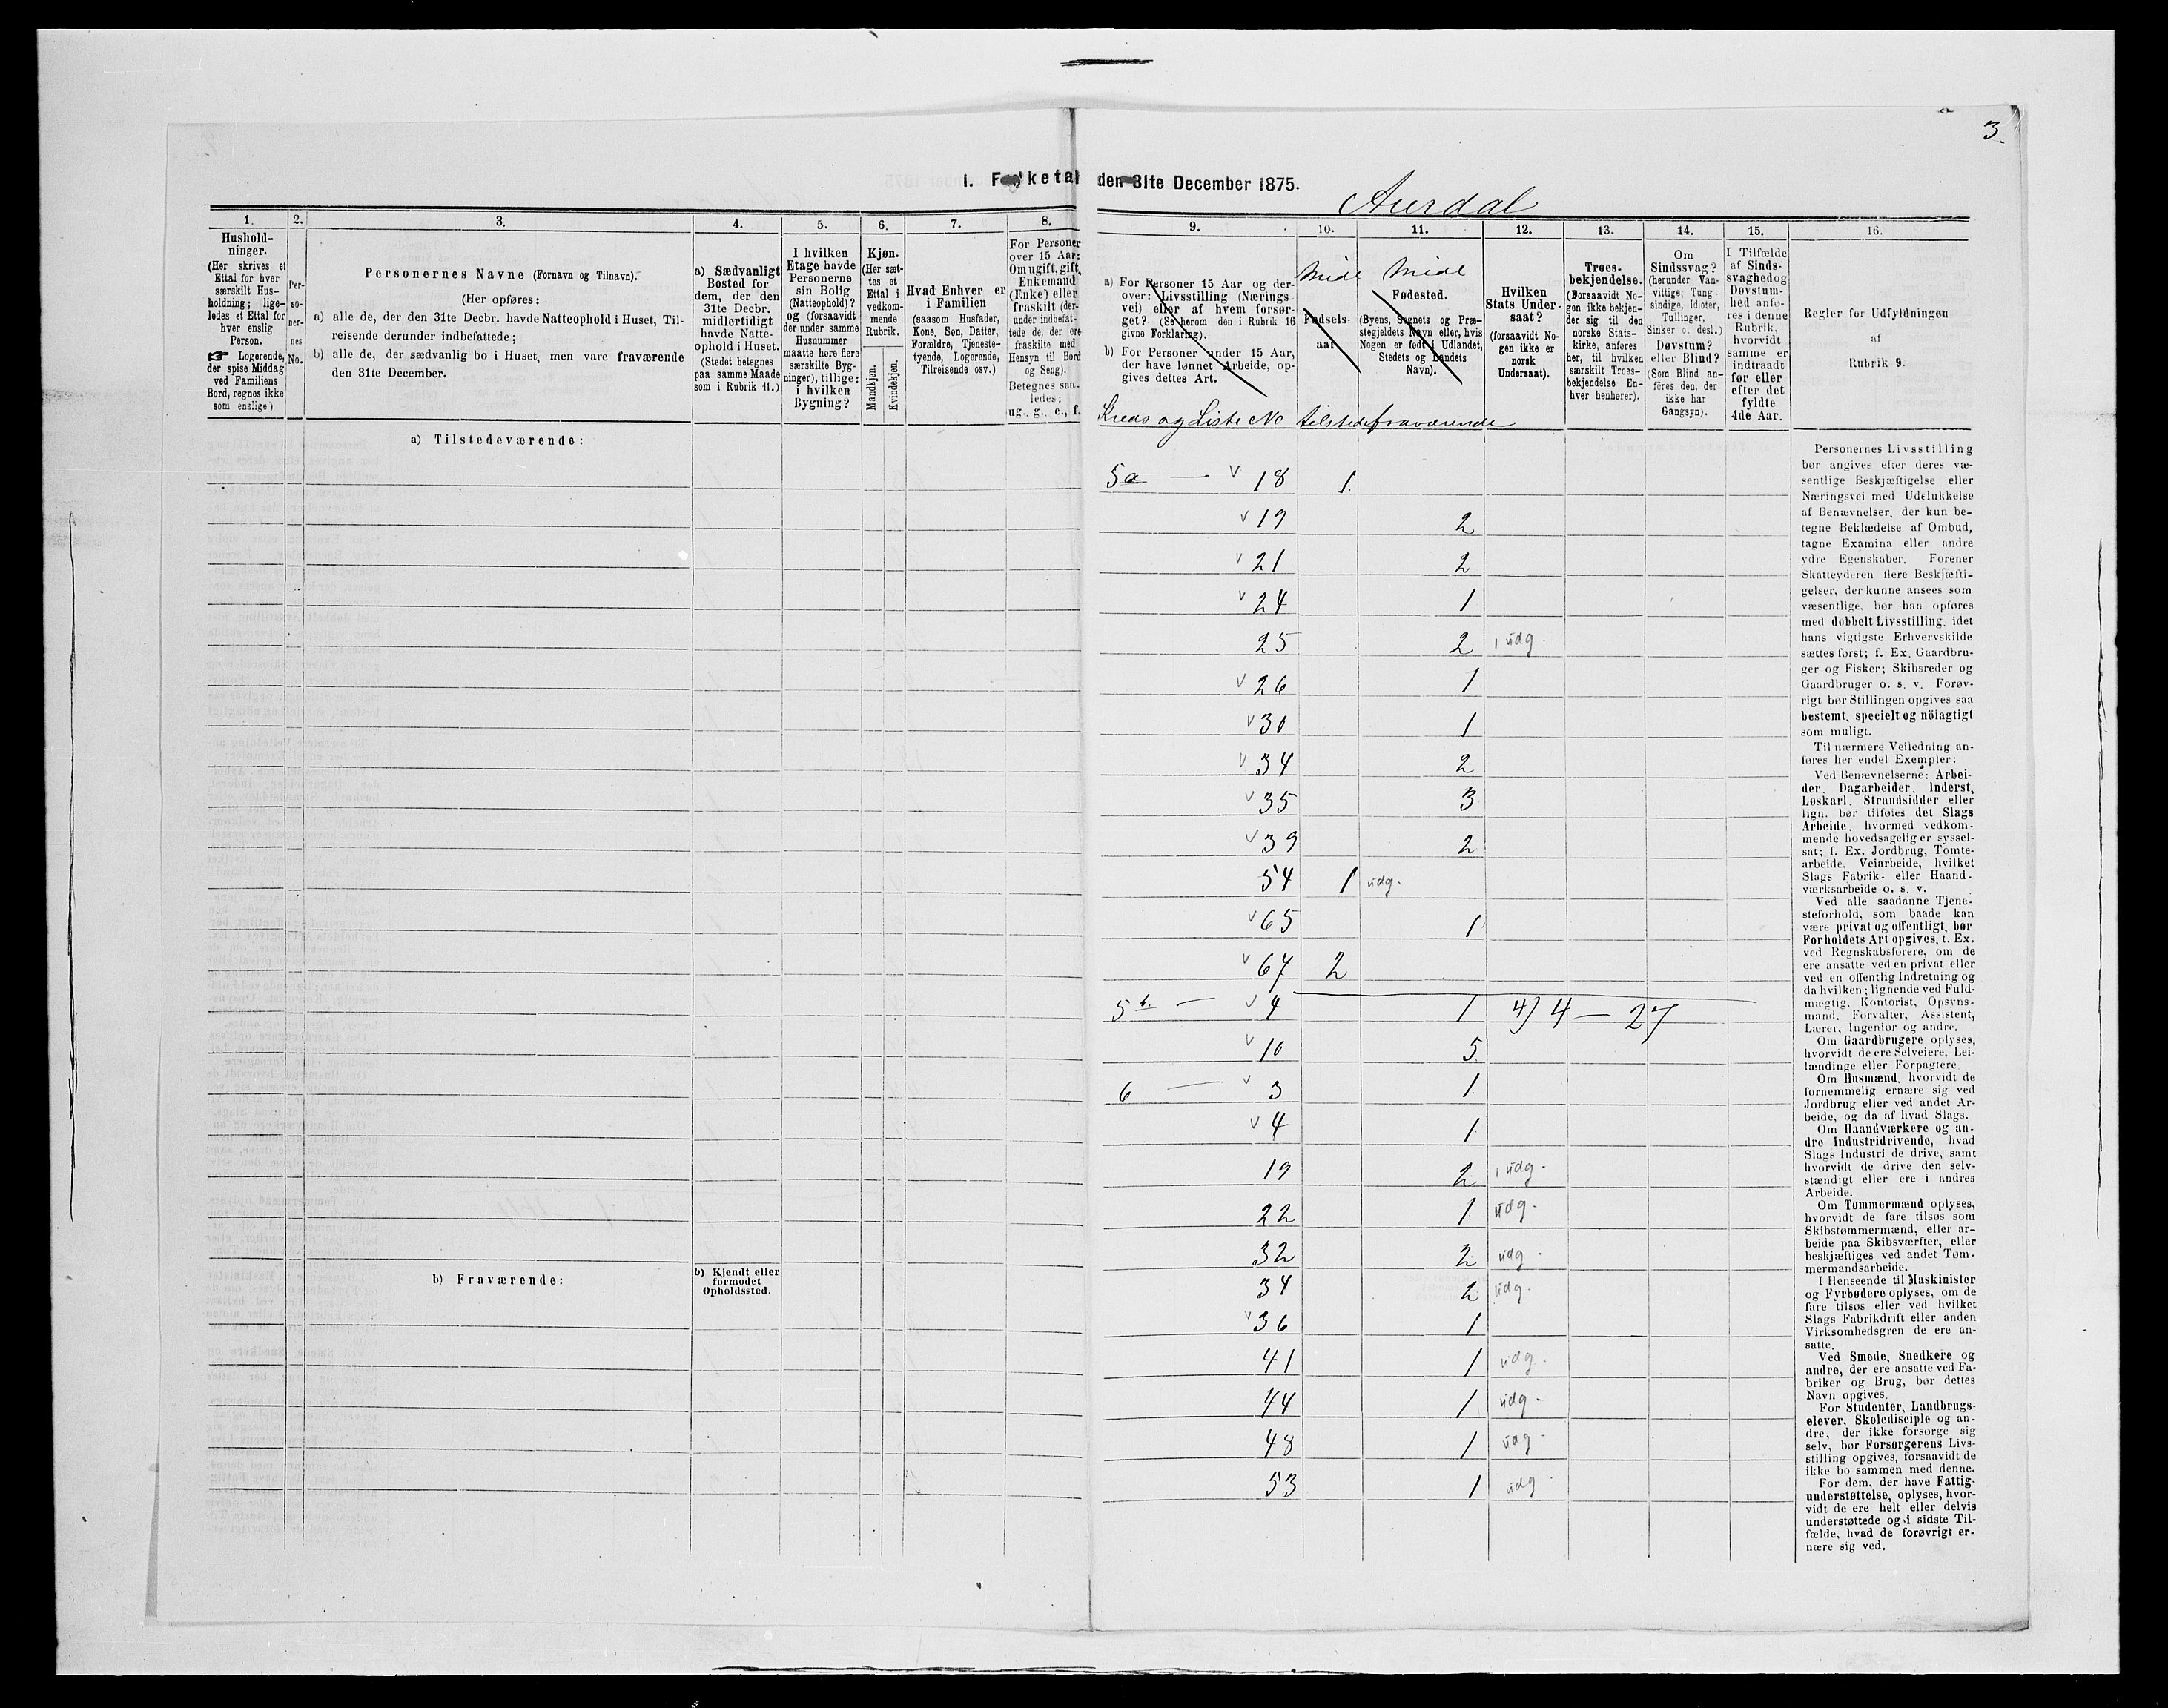 3.
1. Folketal den 31te December 1875.
Aurdal
1.
Hushold-
ninger.
(Her skrives et
Ettal for hver
særskilt Hus-
holdning; lige-
ledes et Ettal for
hver enslig
Person.
☞ Logerende,
der spise Middag
ved Familiens
Bord, regnes ikke
som enslige)
2.
Per-
so-
ner-
nes
No.
3.
Personernes Navne (Fornavn og Tilnavn).
(Her opføres:
a) alle de, der den 31te Decbr. havde Natteophold i Huset, Til-
reisende derunder indbefattede;
b) alle de, der sædvanlig bo i Huset, men vare fraværende
den 31te December.
4.
a) Sædvanligt
Bosted for
dem, der den
31te Decbr.
midlertidigt
havde Natte-
ophold i Huset.
(Stedet betegnes
paa samme Maade
som i Rubrik 11.)
5.
I hvilken
Etage havde
Personerne
sin Bolig
(Natteophold)?
og (forsaavidt
der under samme
Husnummer
maatte høre flere
særskilte Byg-
ninger), tillige:
i hvilken
Bygning?
6.
Kjøn.
(Her sæt-
tes et
Ettal i
vedkom-
mende
Rubrik.
Mandkjøn.
Kvindekjøn.
7.
Hvad Enhver er
i Familien
(saasom Husfader,
Kone, Søn, Datter,
Forældre, Tjeneste-
tyende, Logerende,
Tilreisende osv.)
8.
For Personer
over 15 Aar:
Om ugift, gift,
Enkemand
(Enke) eller
fraskilt (der-
under indbefat-
tede de, der ere
fraskilte med
Hensyn til Bord
og Seng).
Betegnes saa-
ledes:
ug., g., e., f.
9.
a) For Personer 15 Aar og der-
over: Livsstilling (Nærings-
vei) eller af hvem forsør-
get? (Se herom den i Rubrik 16
givne Forklaring).
b) For Personer under 15 Aar,
der have lønnet Arbeide, op-
gives dettes Art.
10.
Midl
Fødsels-
aar
11.
Midl
Fødested.
(Byens, Sognets og Præ-
stegjeldets Navn eller, hvis
Nogen er født i Udlandet,
Stedets og Landets
Navn).
12.
Hvilken
Stats Under-
saat?
(forsaavidt No-
gen ikke er
norsk
Undersaat).
13.
Troes-
bekjendelse.
(Forsaavidt No-
gen ikke bekjen-
der sig til den
norske Stats-
kirke, anføres
her, til hvilken
særskilt Troes-
bekjendelse En-
hver henhører).
14.
Om
Sindssvag?
(herunder Van-
vittige, Tung-
sindige, Idioter,
Tullinger,
Sinker o. desl.)
Døvstum?
eller Blind?
(Som Blind an-
føres den, der
ikke har
Gangsyn).
15.
I Tilfælde
af Sinds-
svaghed og
Døvstum-
hed anfø-
res i denne
Rubrik,
hvorvidt
samme er
indtraadt
før eller
efter det
fyldte
4de Aar.
16.
Regler for Udfyldningen
af
Rubrik 9.
Kreds og Liste No tilstede fraværende
a) Tilstedeværende:
5a — v 18 1.
v 19 2
v 21 2
v 24 1
25 2 1 udg.
v 26 1
v 30 1
v 34 2
v 35 3
v 39 2
54 1 udg.
v 65 1
v 67 2
5b. — v 4 1 4) 4 — 27
v 10 5
6 — v 3 1
v 4 1
19 2 1 udg.
22 1 udg.
32 2 udg.
b) Fraværende:
b) Kjendt eller
formodet
Opholdssted.
34 2 udg.
v 36 1
41 1 udg.
44 1 udg.
48 1 udg.
53 1 udg
Personernes Livsstilling
bør angives efter deres væ-
sentlige Beskjæftigelse eller
Næringsvei med Udelukkelse
af Benævnelser, der kun be-
tegne Beklædelse af Ombud,
tagne Examina eller andre
ydre Egenskaber. Forener
Skatteyderen flere Beskjæfti-
gelser, der kunne ansees som
væsentlige, bør han opføres
med dobbelt Livsstilling, idet
hans vigtigste Erhvervskilde
sættes først; f. Ex. Gaardbru-
ger og Fisker; Skibsreder og
Gaardbruger o. s. v. Forøv-
rigt bør Stillingen opgives saa
bestemt, specielt og nöiagtigt
som muligt.
Til nærmere Veiledning an-
føres her endel Exempler:
Ved Benævnelserne: Arbei-
der, Dagarbeider, Inderst,
Løskarl, Strandsidder eller
lign. bør tilføies det Slags
Arbeide, hvormed vedkom-
mende hovedsagelig er syssel-
sat; f. Ex. Jordbrug, Tomte-
arbeide, Veiarbeide, hvilket
Slags Fabrik- eller Haand-
værksarbeide o. s. v.
Ved alle saadanne Tjene-
steforhold, som baade kan
være privat og offentligt, bør
Forholdets Art opgives, t. Ex.
ved Regnskabsførere, om de
ere ansatte ved en privat eller
ved en offentlig Indretning og
da hvilken; lignende ved Fuld-
mægtig, Kontorist, Opsyns-
mand, Forvalter, Assistent,
Lærer, Ingeniør og andre.
Om Gaardbrugere oplyses,
hvorvidt de ere Selveiere, Lei-
lændinge eller Forpagtere.
Om Husmænd, hvorvidt de
fornemmelig ernære sig ved
Jordbrug eller ved andet Ar-
beide, og da af hvad Slags.
Om Haandværkere og an-
dre Industridrivende, hvad
Slags Industri de drive, samt
hvorvidt de drive den selv-
stændigt eller ere i andres
Arbeide.
Om Tømmermænd oplyses,
hvorvidt de fare tilsøs som
Skibstømmermænd, eller ar-
beide paa Skibsværfter, eller
beskjæftiges ved andet Tøm-
mermandsarbeide.
I Henseende til Maskinister
og Fyrbødere oplyses, om de
fare tilsøs eller ved hvilket
Slags Fabrikdrift eller anden
Virksomhedsgren de ere an-
satte.
Ved Smede, Snedkere og
andre, der ere ansatte ved Fa-
briker og Brug, bør dettes
Navn opgives.
For Studenter, Landbrugs-
elever, Skoledisciple og an-
dre, der ikke forsørge sig
selv, bør Forsørgerens Livs-
stilling opgives, forsaavidt de
ikke bo sammen med denne.
For dem, der have Fattig-
understøttelse, oplyses, hvor-
vidt de ere helt eller delvis
understøttede og i sidste Til-
fælde, hvad de forøvrigt er-
nære sig ved.